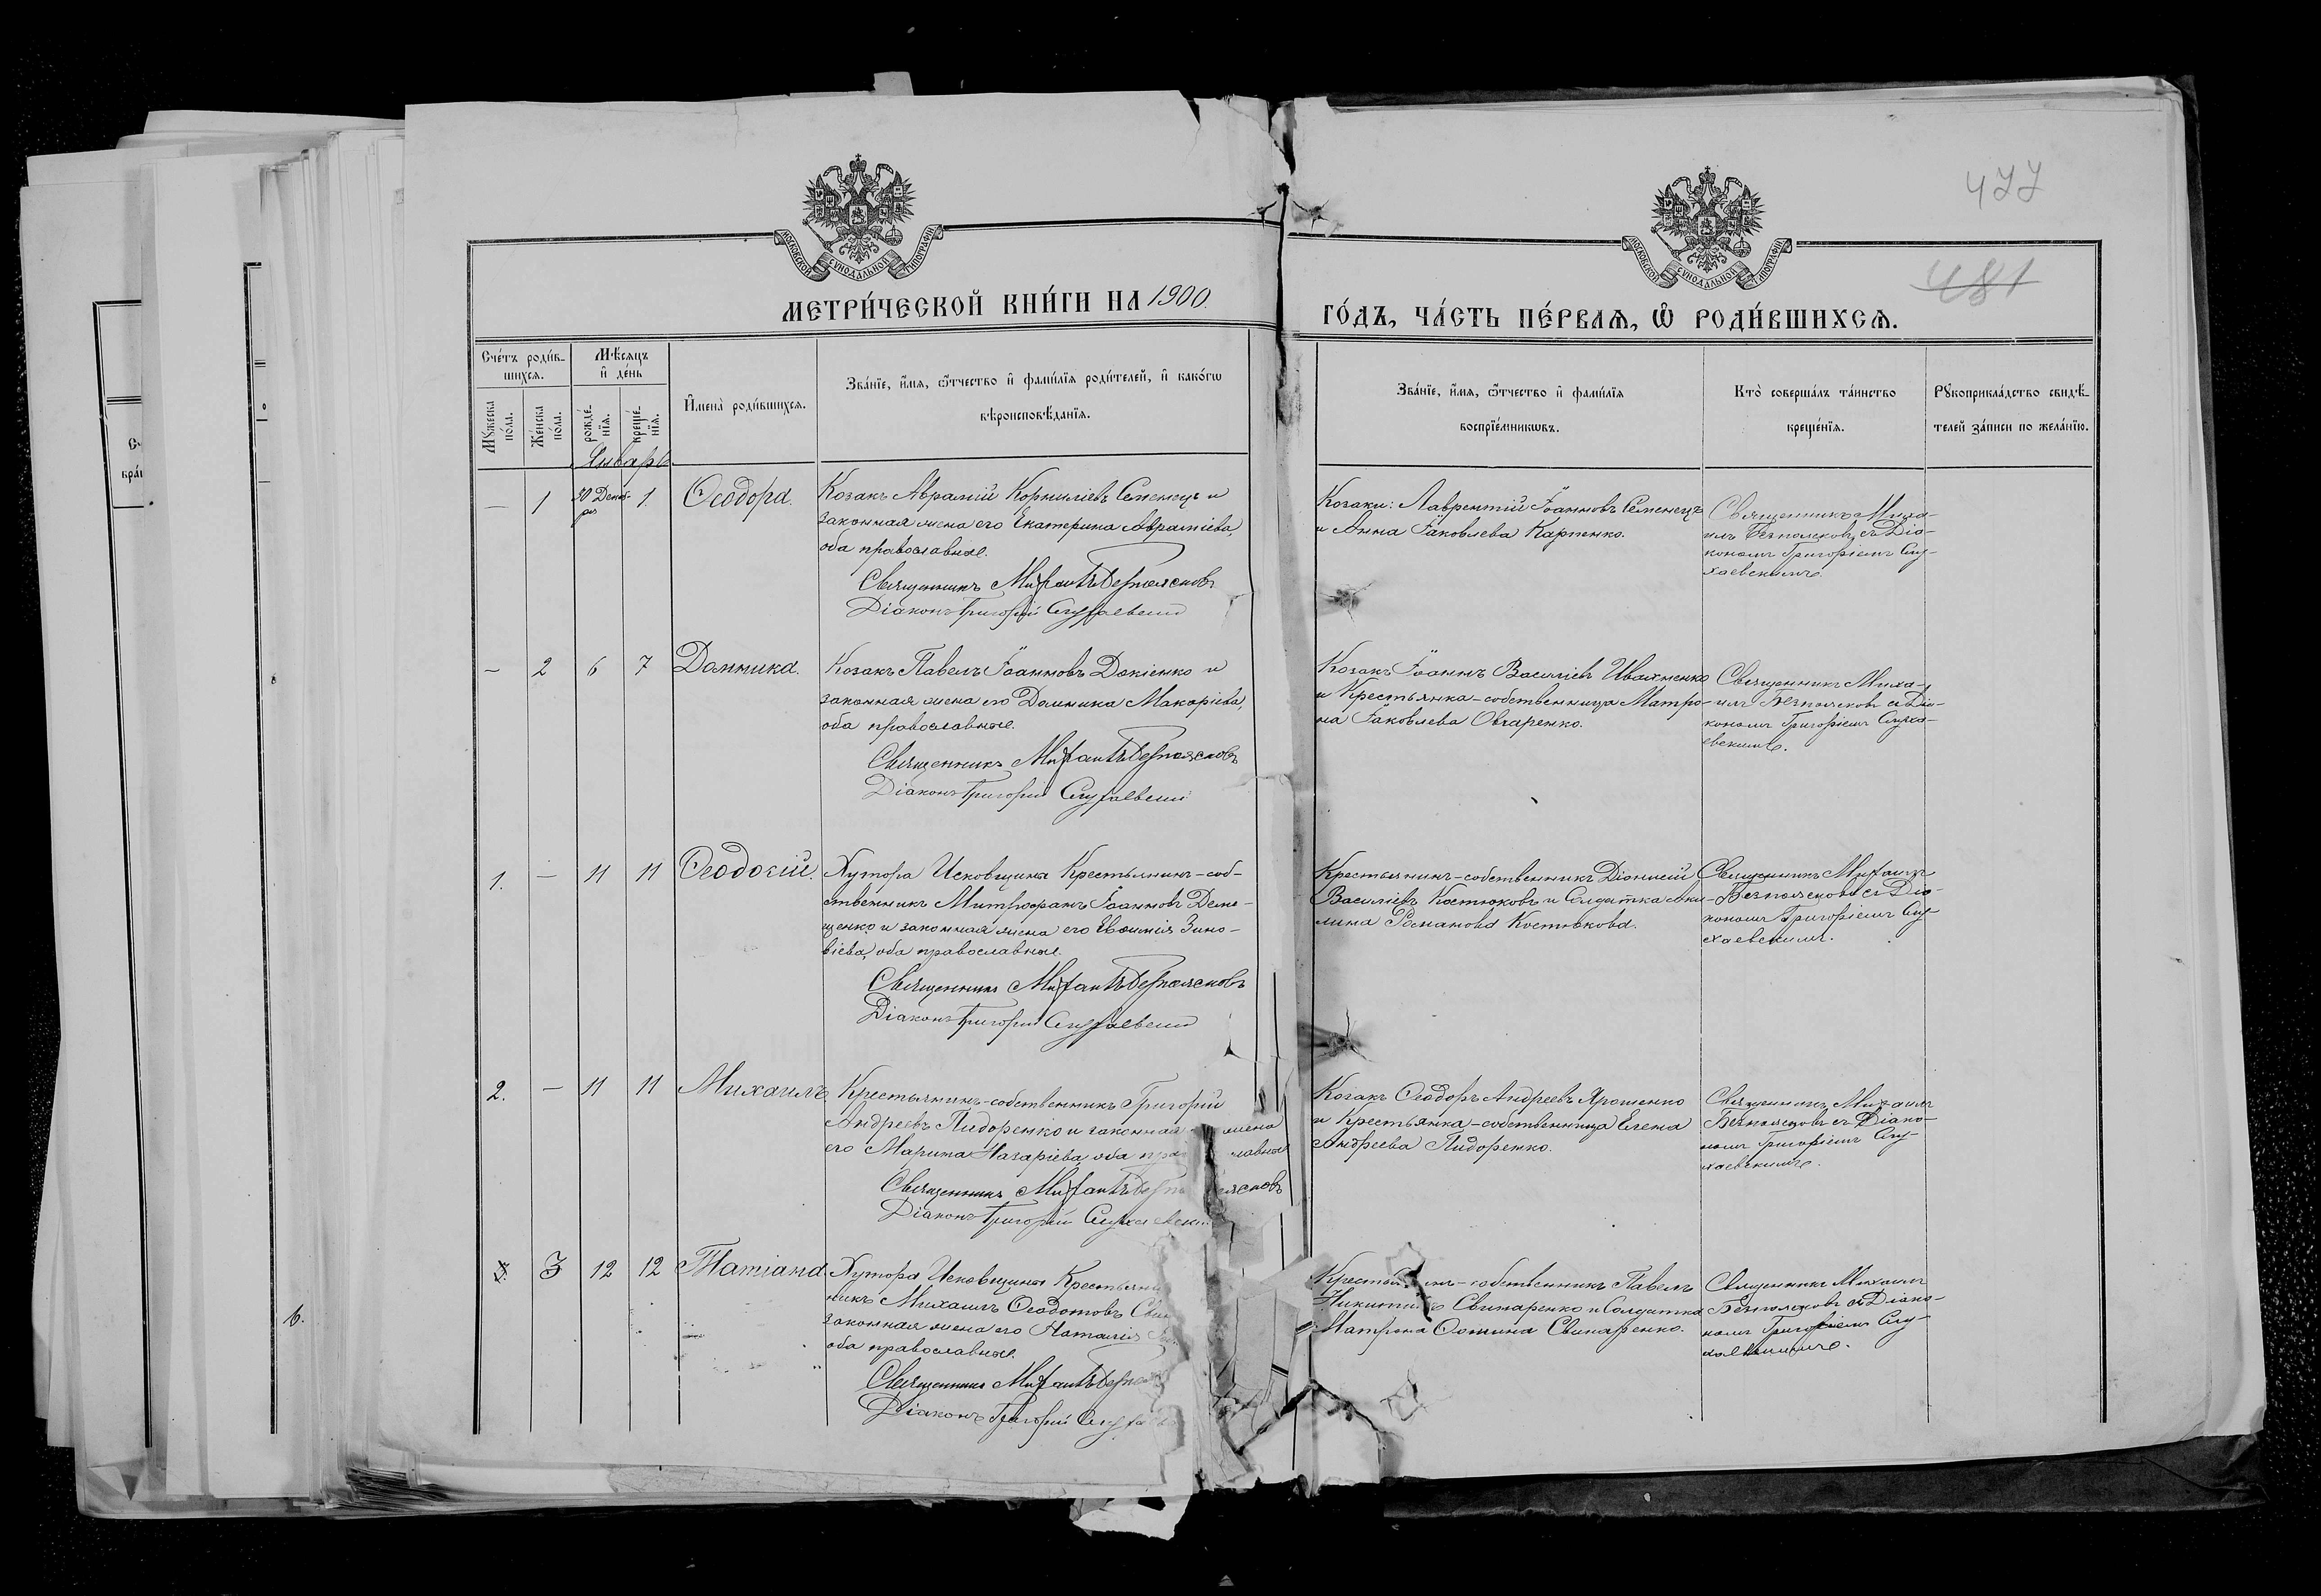 477
481
МОСКОВСКОЙ СУНОДАЛЬНОЙ ТИПОГРАФІИ
МОСКОВСКОЙ СУНОДАЛЬНОЙ ТИПОГРАФІИ
МЕТРИ́ЧЕСКОЙ КНИ́ГИ НА 1900.
ГО́ДЪ, ЧА́СТЬ ПЕ́РВАѦ, Ѡ РОДИ́ВШИХСѦ.
Сче́тъ роди́в-
шихсѧ.
Мѣ́сѧцъ
и҆ де́нь
Мꙋ́жеска
по́ла.
Же́нска
по́ла.
рожде́-
нїѧ.
креще́-
нїѧ.
И҆мена̀ роди́вшихсѧ.
Зва́нїе, и҆́мѧ, ѻ҆́тчество и҆ фами́лїѧ роди́телей, и҆ како́гѡ
вѣроисповѣ́данїѧ.
Зва́нїе, и҆́мѧ, ѻ҆́тчество и҆ фами́лїѧ
воспрїе́мникѡвъ.
Кто̀ соверша́лъ та́инство
креще́нїѧ.
Рꙋкоприкла́дство свидѣ́-
телей за́писи по жела́нїю.
Январь
— 1 30 Декаб-
ря 1. Ѳеодора.
Козакъ Аврамій Корниліевъ Семенецъ и
законная жена его Екатерина Аврамієва,
оба православные.
Священникъ Михаилъ Безпоясковъ
Діаконъ Григорій Слухаевскій
Козаки: Лаврентій Іоанновъ Семенецъ
и Анна Іаковлева Карпенко.
Священникъ Миха-
илъ Безпоясковъ съ Діа-
кономъ Григоріемъ Слу-
хаевскимъ.
— 2 6 7 Домника.
Козакъ Павелъ Іоанновъ Докіенко и
законная жена его Домника Макаріева,
оба православные.
Священникъ Михаилъ Безпоясковъ
Діаконъ Григорій Слухаевскій
Козакъ Іоаннъ Василіевъ Ивахненко
и Крестьянка-собственница Матро-
на Іаковлева Овчаренко.
Священникъ Миха-
илъ Безпоясковъ съ Діа-
кономъ Григоріемъ Слуха-
евскимъ.
1. — 11 11 Ѳеодосій.
Хутора Исковщины Крестьянинъ-соб-
ственникъ Митрофанъ Іоанновъ Деме-
щенко и законная жена его Евѳимія Зино-
віева, оба православные.
Священникъ Михаилъ Безпоясковъ
Діаконъ Григорій Слухаевскій
Крестьянинъ-собственникъ Діонисій
Василіевъ Костюковъ и Солдатка Аки-
лина Романова Костюкова.
Священникъ Михаилъ
Безпоясковъ съ Діа-
кономъ Григоріемъ Слу-
хаевскимъ.
2. — 11 11 Михаилъ
Крестьянинъ-собственникъ Григорій
Андреевъ Пидоренко и законная жена
его Марина Назаріева, оба православные
Священникъ Михаилъ Безпоясковъ
Діаконъ Григорій Слухаевскій
Козакъ Ѳеодоръ Андреевъ Ярошенко
и Крестьянка-собственница Елена
Андреева Пидоренко.
Священникъ Михаилъ
Безпоясковъ съ Діако-
номъ Григоріемъ Слу-
хаевскимъ.
3. 3 12 12 Татіана.
Хутора Исковщины Крестьяни
никъ Михаилъ Ѳеодотовъ Сви
законная жена его Наталія
оба православные.
Священникъ Михаилъ Безпояс
Діаконъ Григорій Слуха
Крестьянинъ-собственникъ Павелъ
Никитинъ Свинаренко и Солдатка
Матрона Ѳомина Свинаренко.
Священникъ Михаилъ
Безпоясковъ съ Діако-
номъ Григоріемъ Слу-
хаевскимъ.
6.